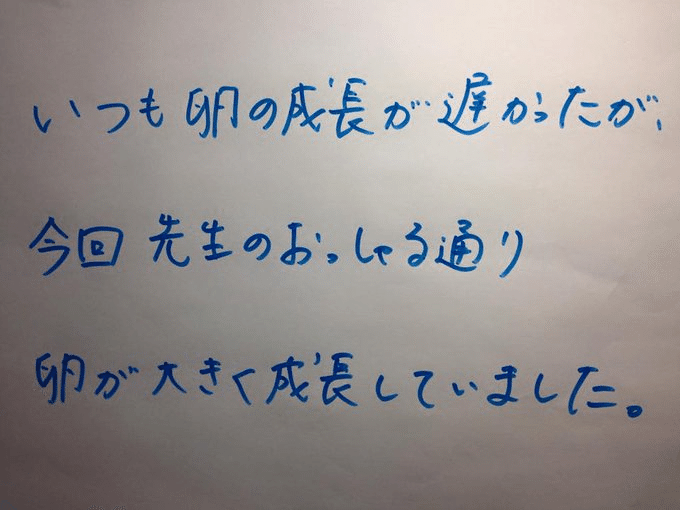 いつも卵の成長が遅かったが、
今回先生のおっしゃる通り
卵が大きく成長していました。